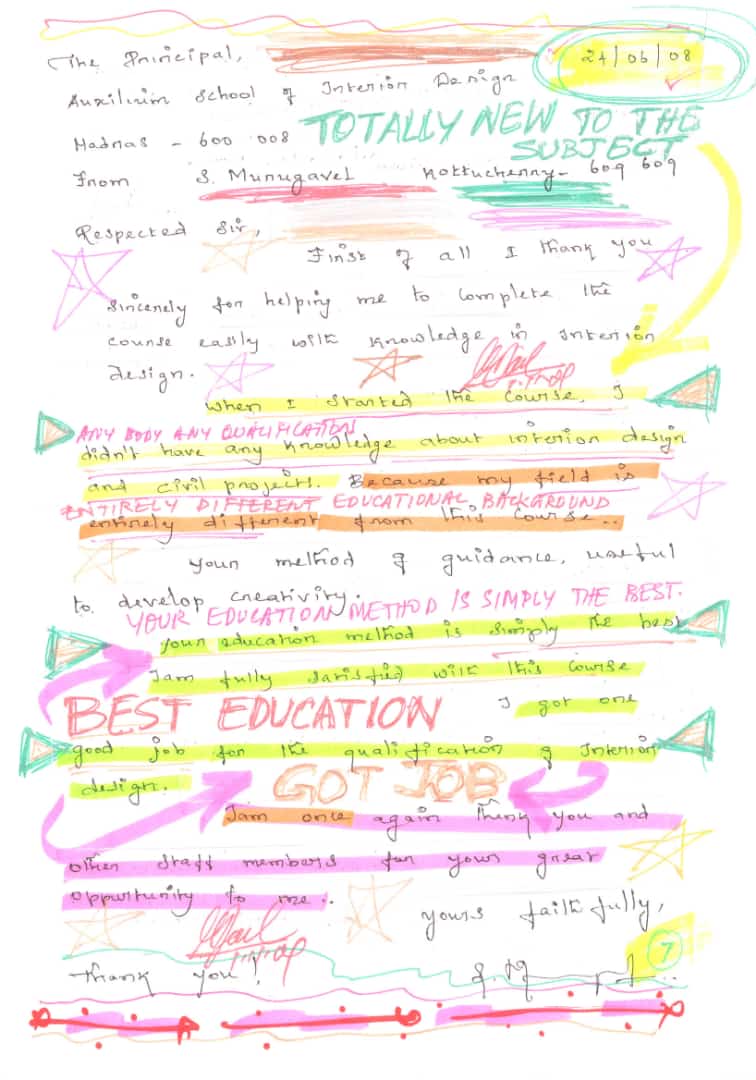 The Principal,
24/06/08
Auxilium School of Interior Design
Madras - 600 008
TOTALLY NEW TO THE
SUBJECT
From S. Murugavel Kottucherry - 609 609
Respected Sir,
First of all I thank you
sincerely for helping me to complete the
course easily with knowledge in Interior
design.
When I started the course, I
ANY BODY ANY QUALIFICATION
didn't have any knowledge about interior design
and civil projects. Because my field is
ENTIRELY DIFFERENT EDUCATIONAL BACKGROUND
entirely different from this course..
Your method of guidance, useful
to develop creativity.
YOUR EDUCATION METHOD IS SIMPLY THE BEST.
Your education method is simply the best
I am fully satisfied with this course
BEST EDUCATION
I got one
good job for the qualification of Interior
design.
GOT JOB
I am once again thank you and
other staff members for your great
oppurtunity to me..
yours faithfully,
Thank you!
7